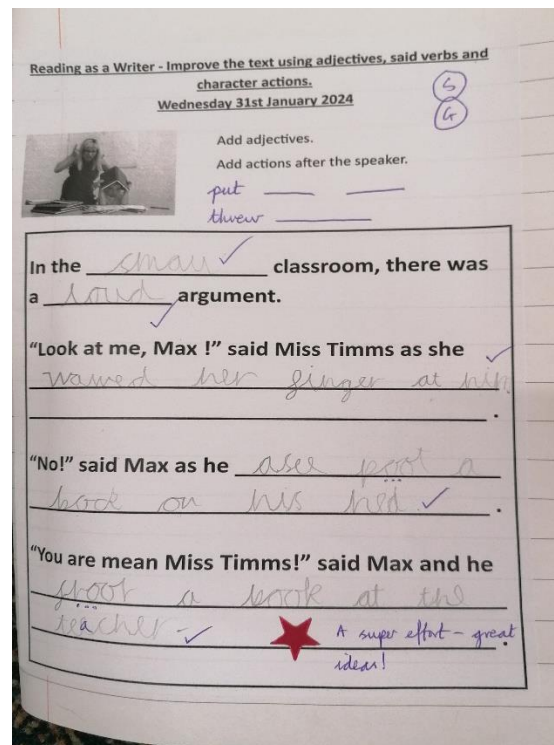 Reading as a Writer - Improve the text using adjectives, said verbs and
character actions.
Wednesday 31st January 2024
S
G
Add adjectives.
Add actions after the speaker.
put
threw
In the small classroom, there was
a loud argument.
“Look at me, Max !” said Miss Timms as she
waved her finger at him
.
“No!” said Max as he pool a
book on his hed .
“You are mean Miss Timms!” said Max and he
a book at the
teacher
A super effort - great
ideas!